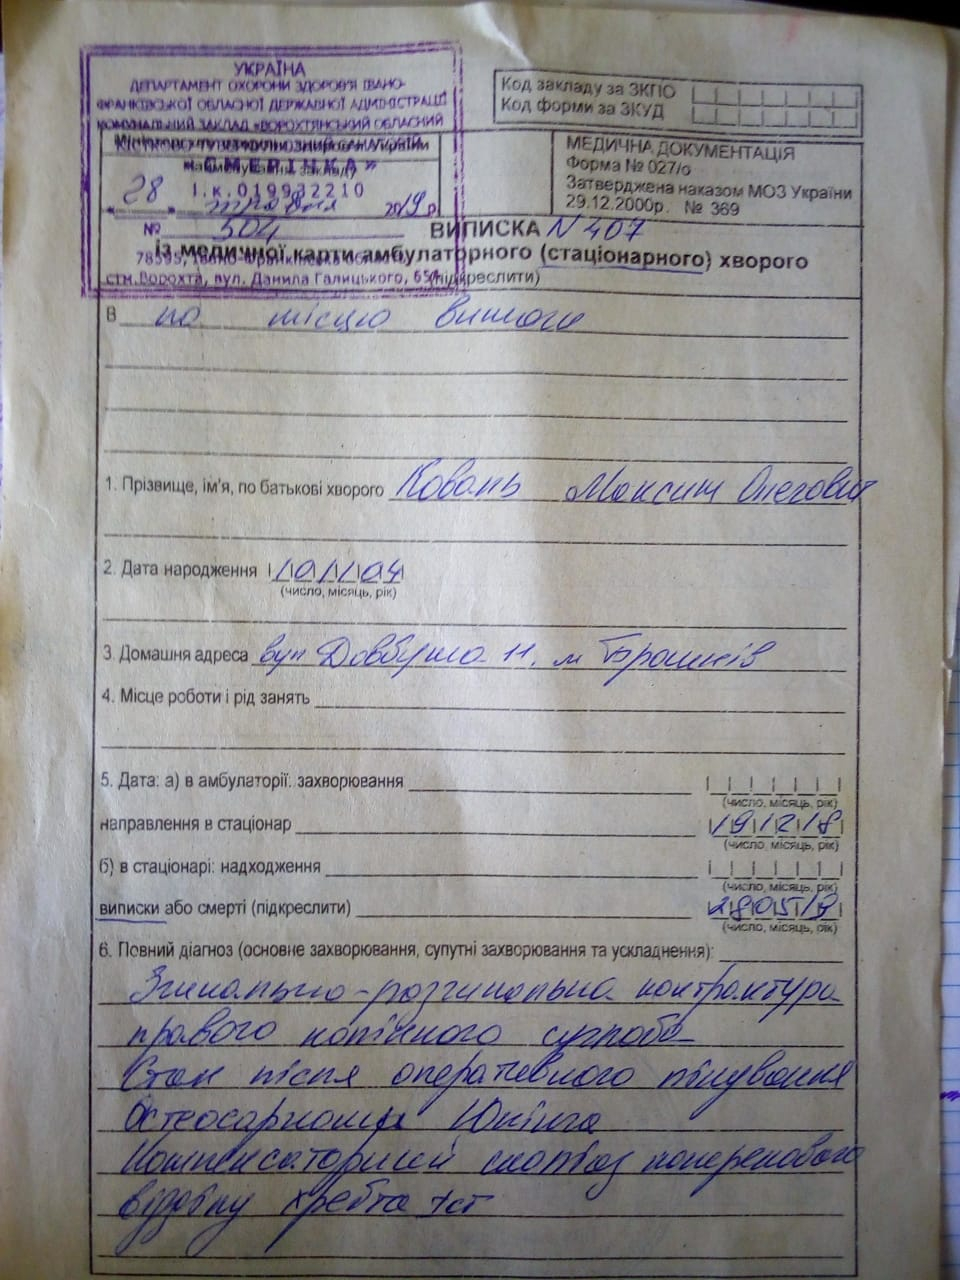 УКРАЇНА
ДЕПАРТАМЕНТ ОХОРОНИ ЗДОРОВ'Я ІВАНО-
ФРАНКІВСЬКОЇ ОБЛАСНОЇ ДЕРЖАВНОЇ АДМІНІСТРАЦІЇ
КОМУНАЛЬНИЙ ЗАКЛАД «ВОРОХТЯНСЬКИЙ ОБЛАСНИЙ
«СМЕРІЧКА»
найменування закладу
І.к.019932210
«28» травня 2019 р.
№ 504
78595,
смт.Ворохта, вул. Данила Галицького, 65А
Код закладу за ЗКПО
Код форми за ЗКУД
МЕДИЧНА ДОКУМЕНТАЦІЯ
Форма № 027/о
Затверджена наказом МОЗ України
29.12.2000р. № 369
ВИПИСКА N 407
із медичної карти амбулаторного (стаціонарного) хворого
(підкреслити)
В по місцю вимоги
1. Прізвище, ім'я, по батькові хворого Ковань Максим Олегович
2. Дата народження
(число, місяць, рік)
3. Домашня адреса вул Довбуша 11. м
4. Місце роботи і рід занять
5. Дата: а) в амбулаторії: захворювання
(число, місяць, рік)
направлення в стаціонар 191218
(число, місяць, рік)
б) в стаціонарі: надходження
(число, місяць, рік)
виписки або смерті (підкреслити) 280519
(число, місяць, рік)
6. Повний діагноз (основне захворювання, супутні захворювання та ускладнення):
Згинально-розгинальна контрактура
правого колінного суглоба
Стан після оперативного лікування
Остеосаркома Юнінга
Компенсаторний сколіоз поперекового
відділу хребта Іст